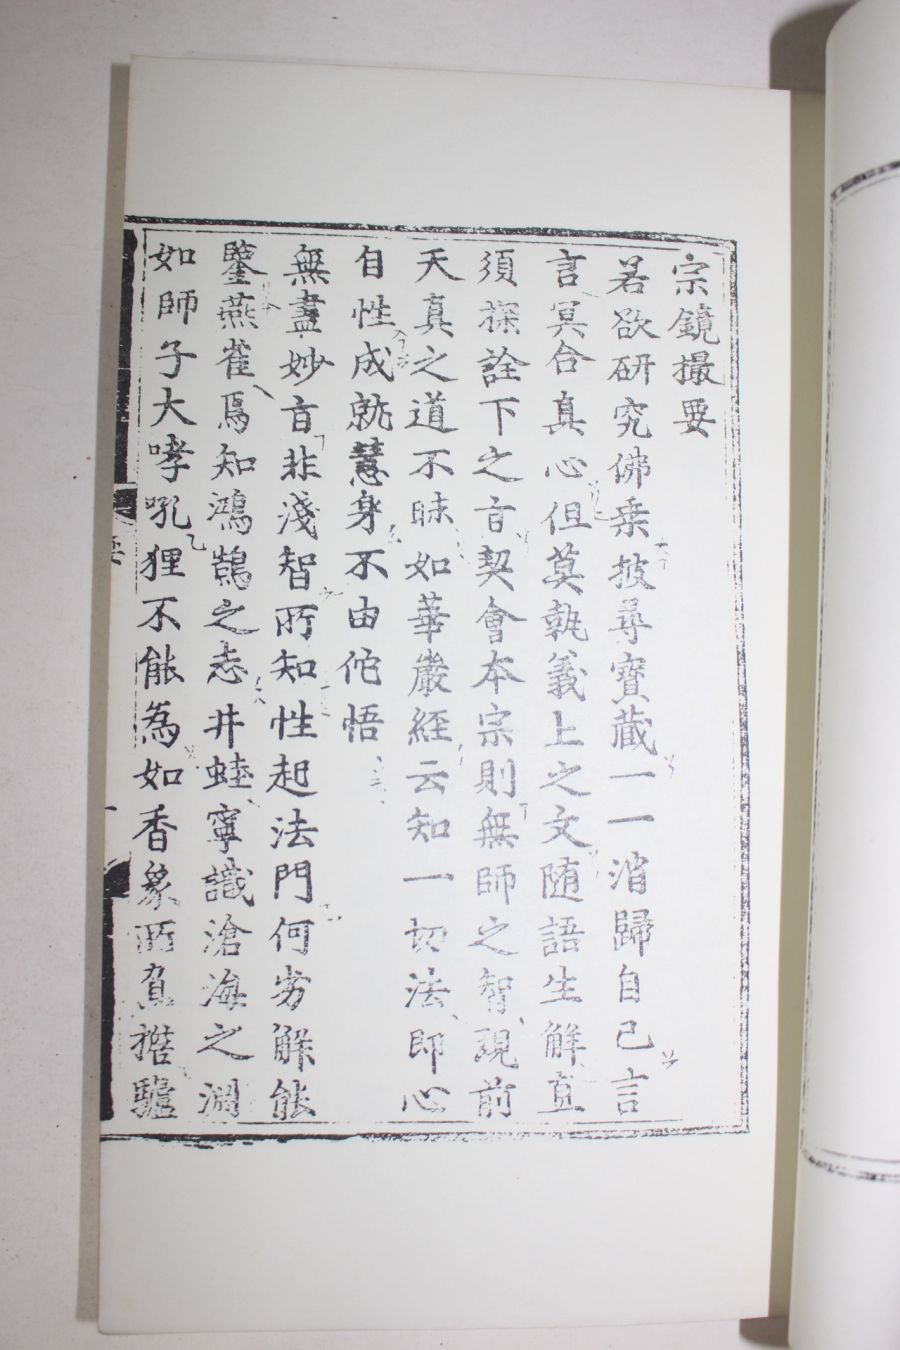 宗鏡撮要
若欲研究佛乗披尋寶藏一一消歸自己言
言冥合真心但莫執義上之文随語生解直
須探詮下之旨契會本宗則無師之智現前
天真之道不昧如華嚴經云知一切法即心
自性成就慧身不由佗悟
無盡妙旨非淺智所知性起法門何劣解能
鑒燕雀焉知鴻鵠之志井蛙寧識滄海之淵
如師子大哮吼狸不能為如香象所負擔驢
要